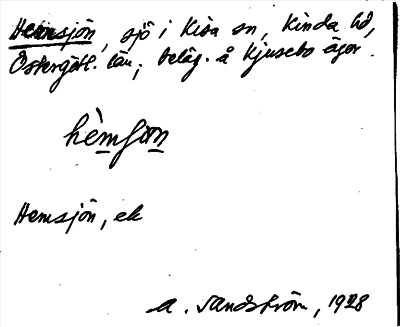 Hemsjön, sjö i Kisa sn, Kinda hd,
Östergötl. län; beläg. å Kjusebo ägor.
hèmʃön
Hemsjön, ek
A. Sandström, 1928